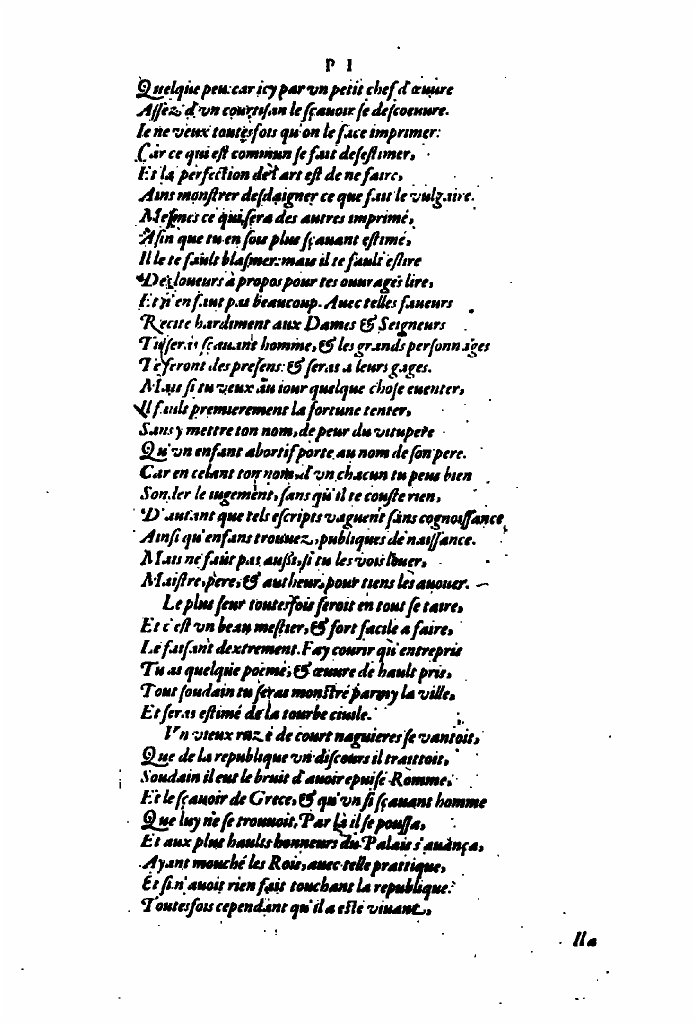 P I
Quelque peu: car icy par vn petit chef d'œuure
Assez d'vn courtisan le sçauoir se descoeuure.
Ie ne veux toutesfois qu'on le face imprimer:
Car ce qui est commun se fait desestimer,
Et la perfection de l'art est de ne faire,
Ains monstrer desdaigner ce que fait le vulgaire.
Mesmes ce qui sera des autres imprimé,
Afin que tu en sois plus sçauant estimé,
Il le te fault blasmer: mais il te fault estre
Des loueurs à propos pour tes ouurages lire,
Et n'en faut pas beaucoup. Auec telles faueurs
Recite hardiment aux Dames & Seigneurs
Tu seras sçauant homme, & les grands personnages
Te feront des presens: & seras a leurs gages.
Mais si tu veux au iour quelque chose euenter,
Il fault premierement la fortune tenter,
Sans y mettre ton nom, de peur du vitupere
Qu'vn enfant abortif porte au nom de son pere.
Car en celant ton nom d'vn chacun tu peus bien
Sonder le iugement, sans qu'il te couste rien,
D'autant que tels escripts vaguent sans cognoissance,
Ainsi qu'enfans trouuez, publiques de naissance.
Mais ne faut pas aussi, si tu les vois louer,
Maistre, pere, & autheur, pour tiens les auouer.
Le plus seur toutesfois seroit en tout se taire,
Et c'est vn beau mestier, & fort facile a faire,
Le faisant dextrement. Fay courir qu'entrepris
Tu as quelque poeme, & œuure de hault pris,
Tout soudain tu seras monstré parmy la ville,
Et seras estimé de la tourbe ciuile.
Vn vieux ruzé de court naguieres se vantoit,
Que de la republique vn discours il traittoit,
Soudain il eut le bruit d'auoir epuisé Romme,
Et le sçauoir de Grece, & qu'vn si sçauant homme
Que luy ne se trouuoit. Par là il se poussa,
Et aux plus haults honneurs du Palais s'auança,
Ayant mouché les Rois, auec telle prattique,
Et si n'auoit rien fait touchant la republique.
Toutesfois cependant qu'il a esté viuant,
Ila